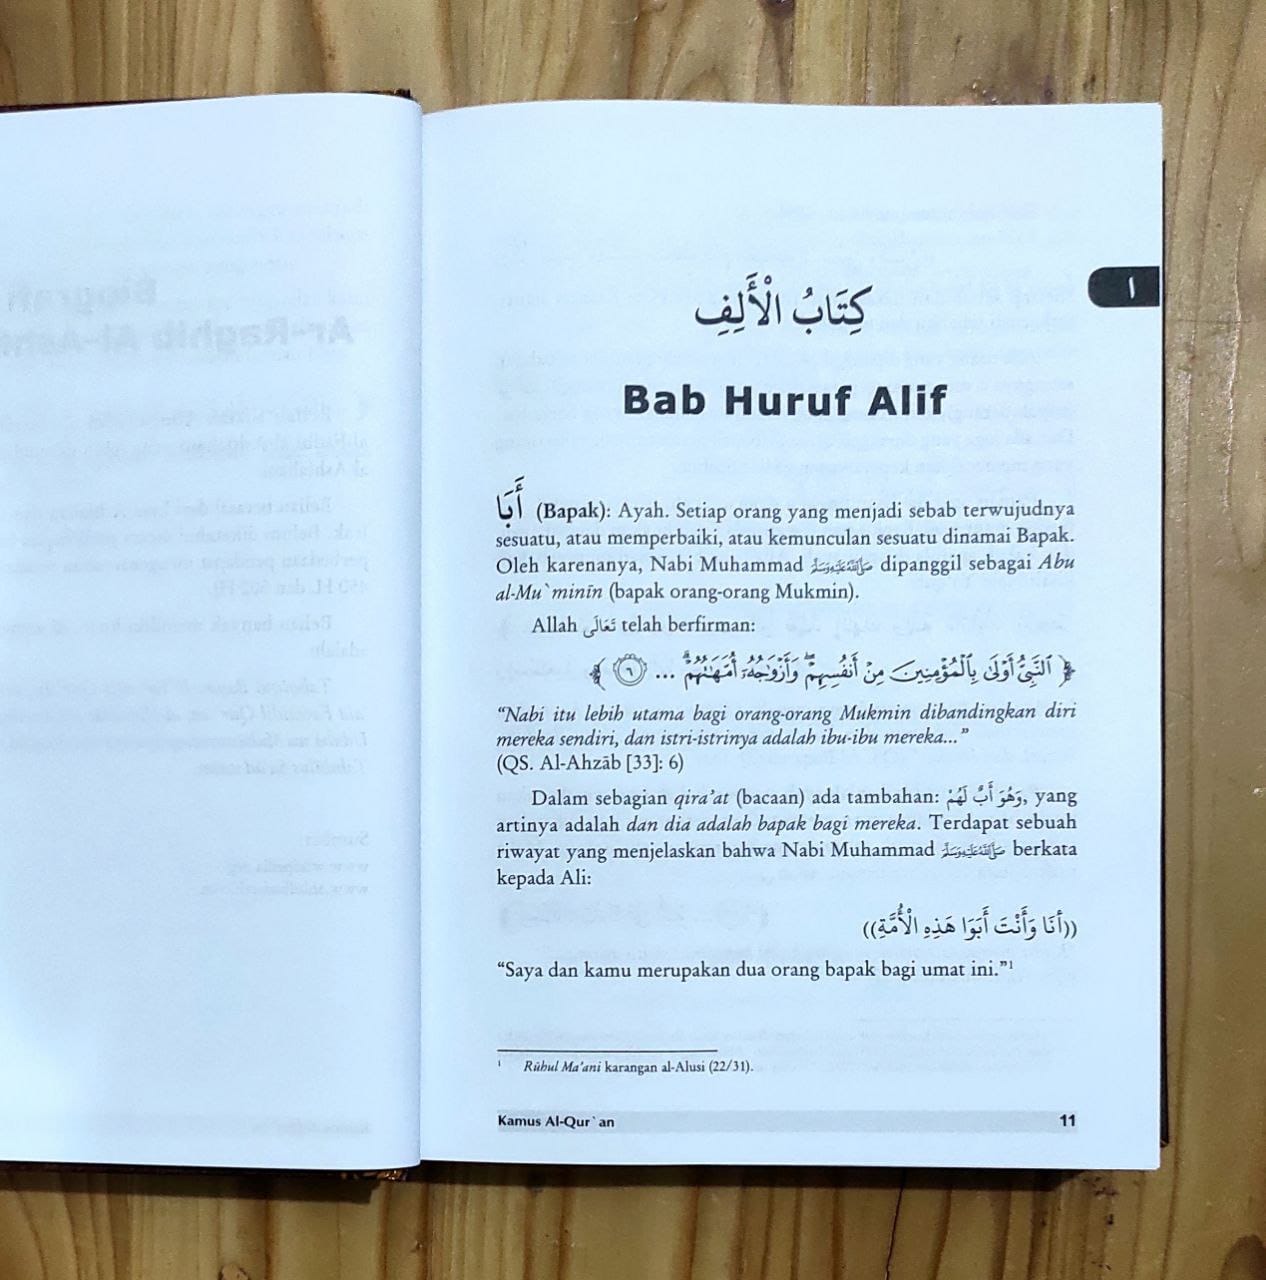 ا
كِتَابُ الْأَلِفِ
Bab Huruf Alif
أَبَا (Bapak): Ayah. Setiap orang yang menjadi sebab terwujudnya
sesuatu, atau memperbaiki, atau kemunculan sesuatu dinamai Bapak.
Oleh karenanya, Nabi Muhammad ﷺ dipanggil sebagai Abu
al-Mu`minīn (bapak orang-orang Mukmin).
Allah تَعَالَى telah berfirman:
﴿ ٱلنَّبِىُّ أَوْلَىٰ بِٱلْمُؤْمِنِينَ مِنْ أَنفُسِهِمْ ۖ وَأَزْوَٰجُهُۥٓ أُمَّهَـٰتُهُمْ ۗ ... ٦ ﴾
“Nabi itu lebih utama bagi orang-orang Mukmin dibandingkan diri
mereka sendiri, dan istri-istrinya adalah ibu-ibu mereka...”
(QS. Al-Ahzāb [33]: 6)
Dalam sebagian qira’at (bacaan) ada tambahan: وَهُوَ أَبٌ لَهُمْ, yang
artinya adalah dan dia adalah bapak bagi mereka. Terdapat sebuah
riwayat yang menjelaskan bahwa Nabi Muhammad ﷺ berkata
kepada Ali:
((أَنَا وَأَنْتَ أَبَوَا هَذِهِ الْأُمَّةِ))
“Saya dan kamu merupakan dua orang bapak bagi umat ini.”1
1 Rūhul Ma’ani karangan al-Alusi (22/31).
Kamus Al-Qur`an 11